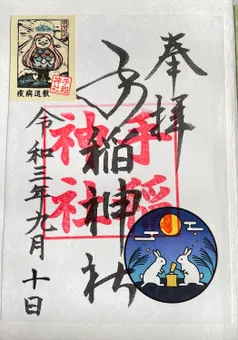 奉拝
手稲神社
手稲
神社
令和三年九月十日
疫病退散
手稲
神社